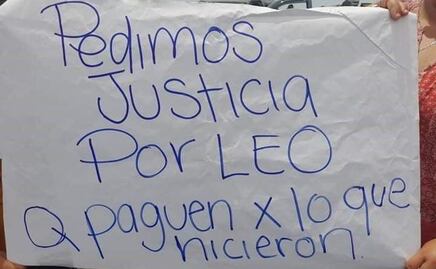 Pedimos
Justicia
Por LEO
Q paguen x lo que
hicieron.